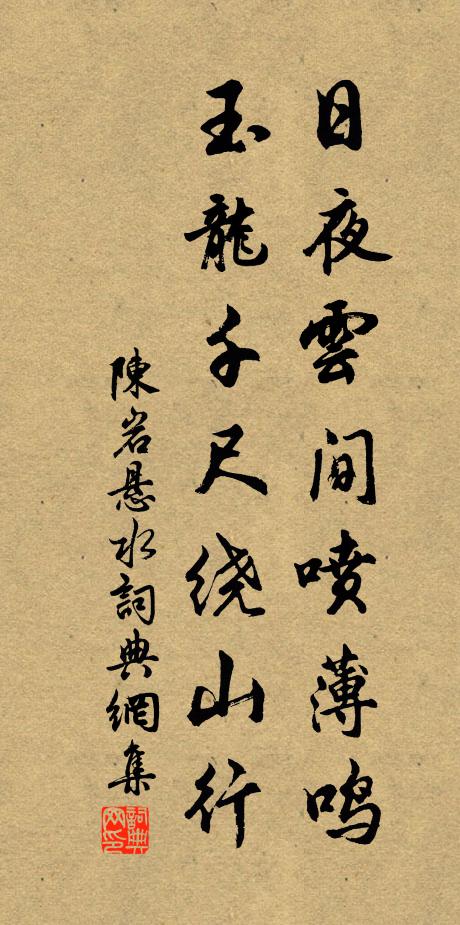 日夜雲间喷薄鸣
玉龍千尺绕山行
陳岩悬水詞典網集
詞典网印